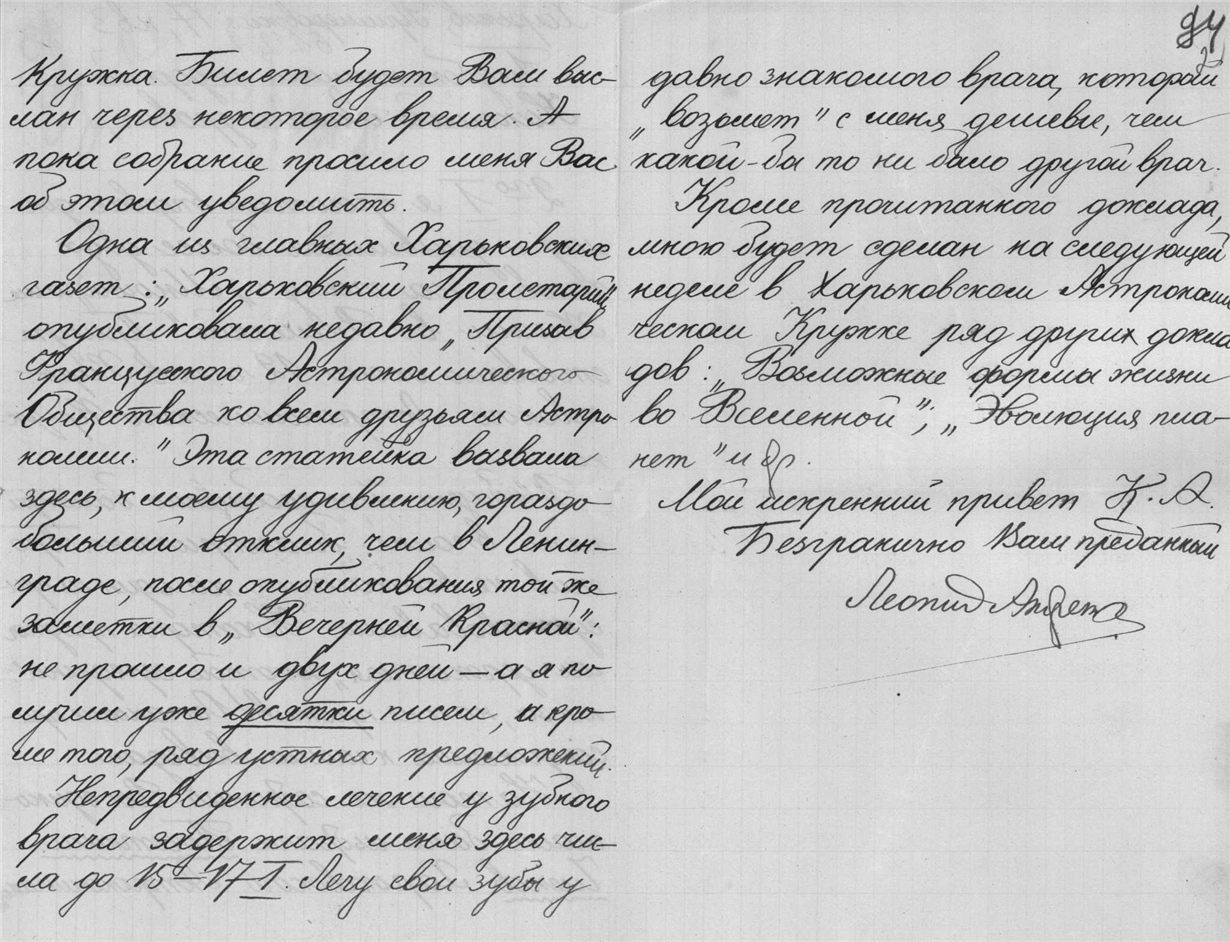 94
Кружка. Билет будет Вам выс-
лан через некоторое время. А
пока собрание просило меня Вас
об этом уведомить.
Одна из главных Харьковских
газет: „Харьковский Пролетарий"
опубликовала недавно „Призыв
Французского Астрономического
Общества ко всем друзьям Астро-
номии." Эта статейка вызвала
здесь, к моему удивлению, гораздо
больший отклик, чем в Ленин-
граде, после опубликования той же
заметки в „Вечерней Красной":
не прошло и двух дней — а я по-
лучил уже десятки писем, а кро-
ме того, ряд устных предложений.
Непредвиденное лечение у зубного
врача задержит меня здесь чис-
ла до 15–17–I. Лечу свои зубы у
давно знакомого врача, который
„возьмет" с меня дешевле, чем
какой-бы то ни было другой врач.
Кроме прочитанного доклада,
мною будет сделан на следующей
неделе в Харьковском Астрономи-
ческом Кружке ряд других докла-
дов: „Возможные формы жизни
во Вселенной"; „Эволюция пла-
нет" и др.
Мой искренний привет К. А.
Безгранично Вам преданный
Леонид Андренко